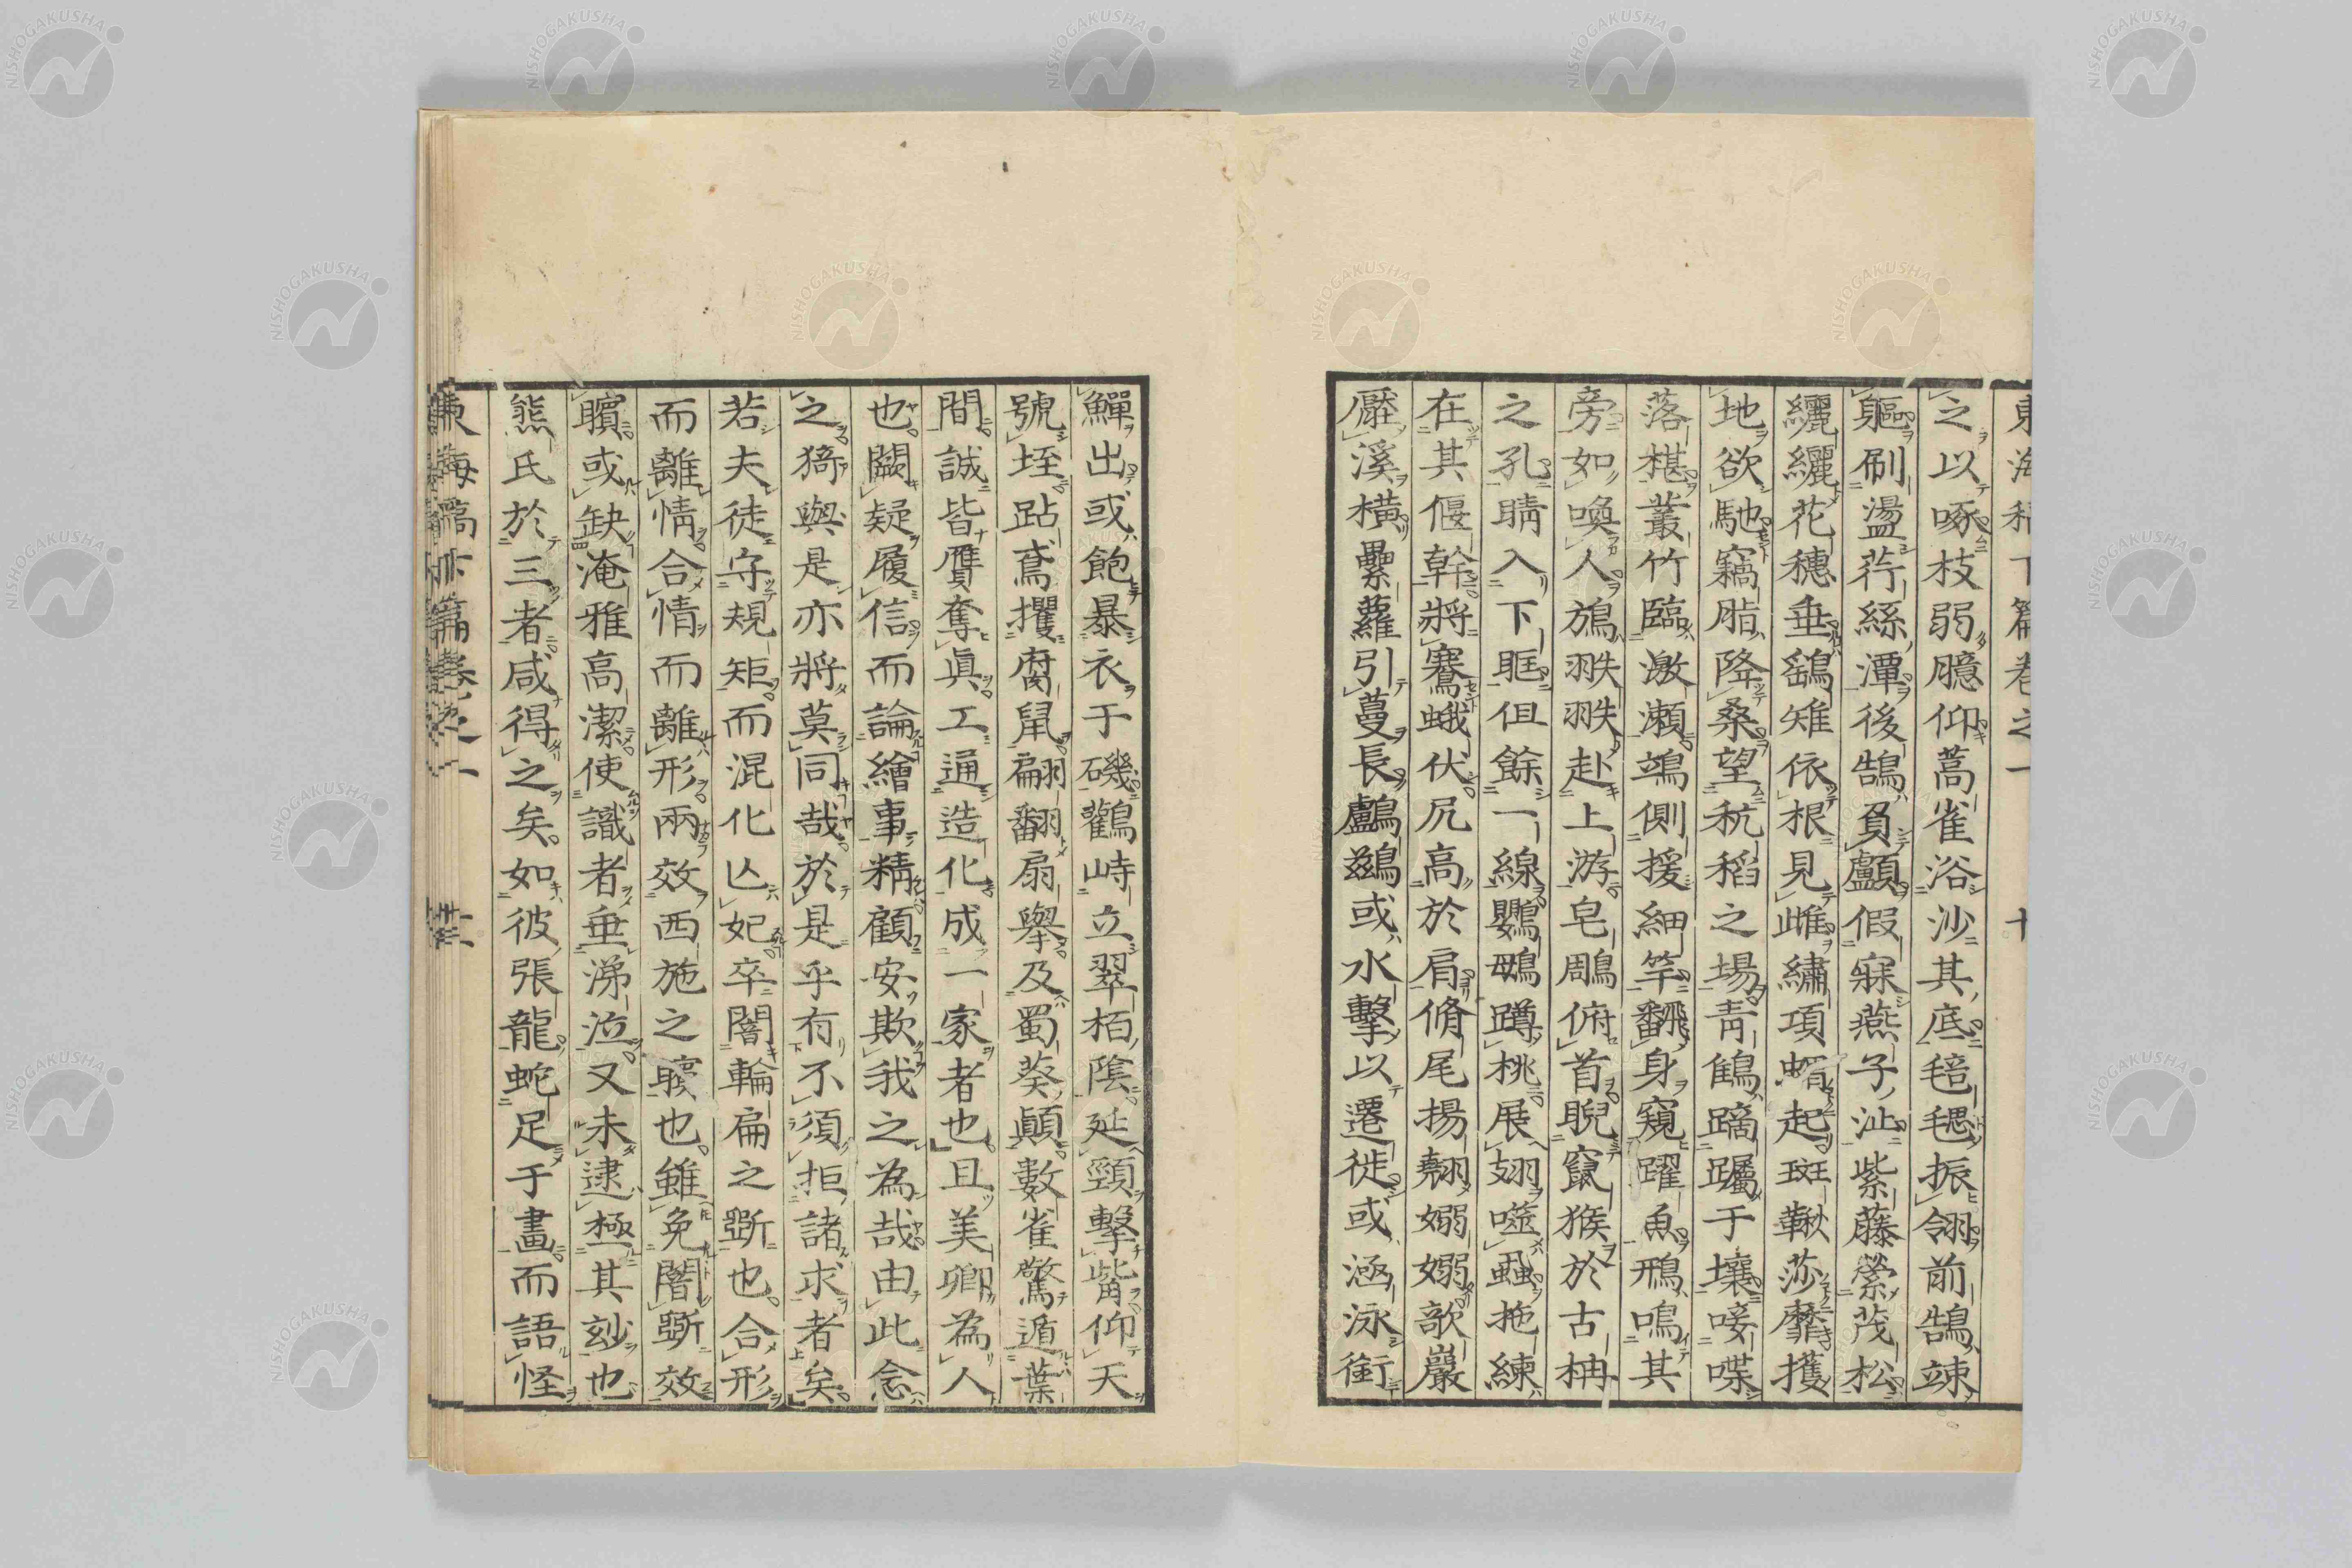 東海稿下篇卷之一 十
之以啄枝弱臆仰蒿雀浴沙其底毰毸振翎前鵠竦
軀刷盪荇絲潭後鵠負顱假寐燕子沚紫藤縈茂松
纚纚花穗垂鷂雉依根見雌繡項蝟起斑鞦莎靡擭
地欲馳竊脂降桑望秔稻之場青鶴蹢躅于壤唼喋
落椹叢竹臨激瀬鴗側援細竿翻身窺躍魚鴉鳴其
旁如喚人鴹翐翐赴上游皂鵰俯首睨竄猴於古枏
之孔睛入下眶但餘一線鸚鵡蹲桃展翅噬蝨拖練
在其偃幹將騫蛾伏尻高於肩脩尾揚翹嫋嫋歌巖
壓溪橫纍蘿引蔓長鸕鷀或水擊以遷徙或涵泳銜
鱓出或飽暴衣于磯鸛峙立翠栢陰延頸擊觜仰天
號垤跕鳶攫腐鼠翩翻扇舉及蜀葵顛數雀驚遁葉
間誠皆贋奪眞工通造化成一家者也且美卿為人
也闕疑履信而論繪事精顧安欺我之為哉由此念
之猗與是亦將莫同哉於是乎有不須拒諸求者矣
若夫徒守規矩而混化亾妃卒闇輪扁之斲也合形
而離情合情而離形兩效西施之矉也雖免闇斲效
矉或缺淹雅高潔使識者垂涕泣又未逮極其玅也
熊氏於三者咸得之矣如彼張龍蛇足于畫而語怪
東海稿下篇卷之一